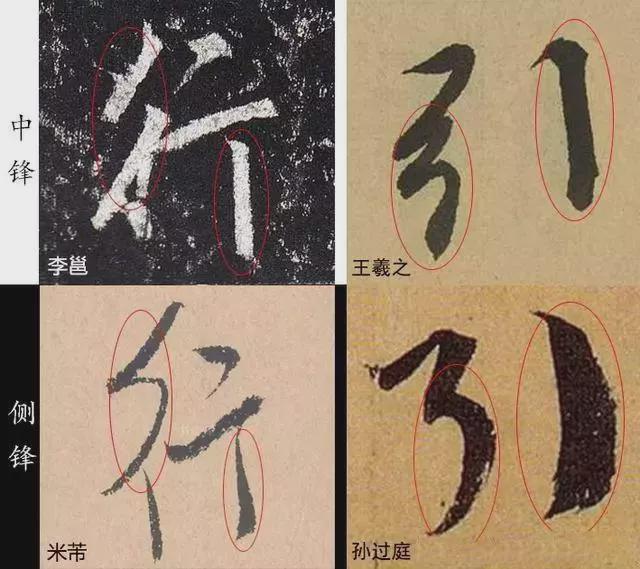 中锋
行
引
李邕
王羲之
侧锋
行
引
米芾
孙过庭